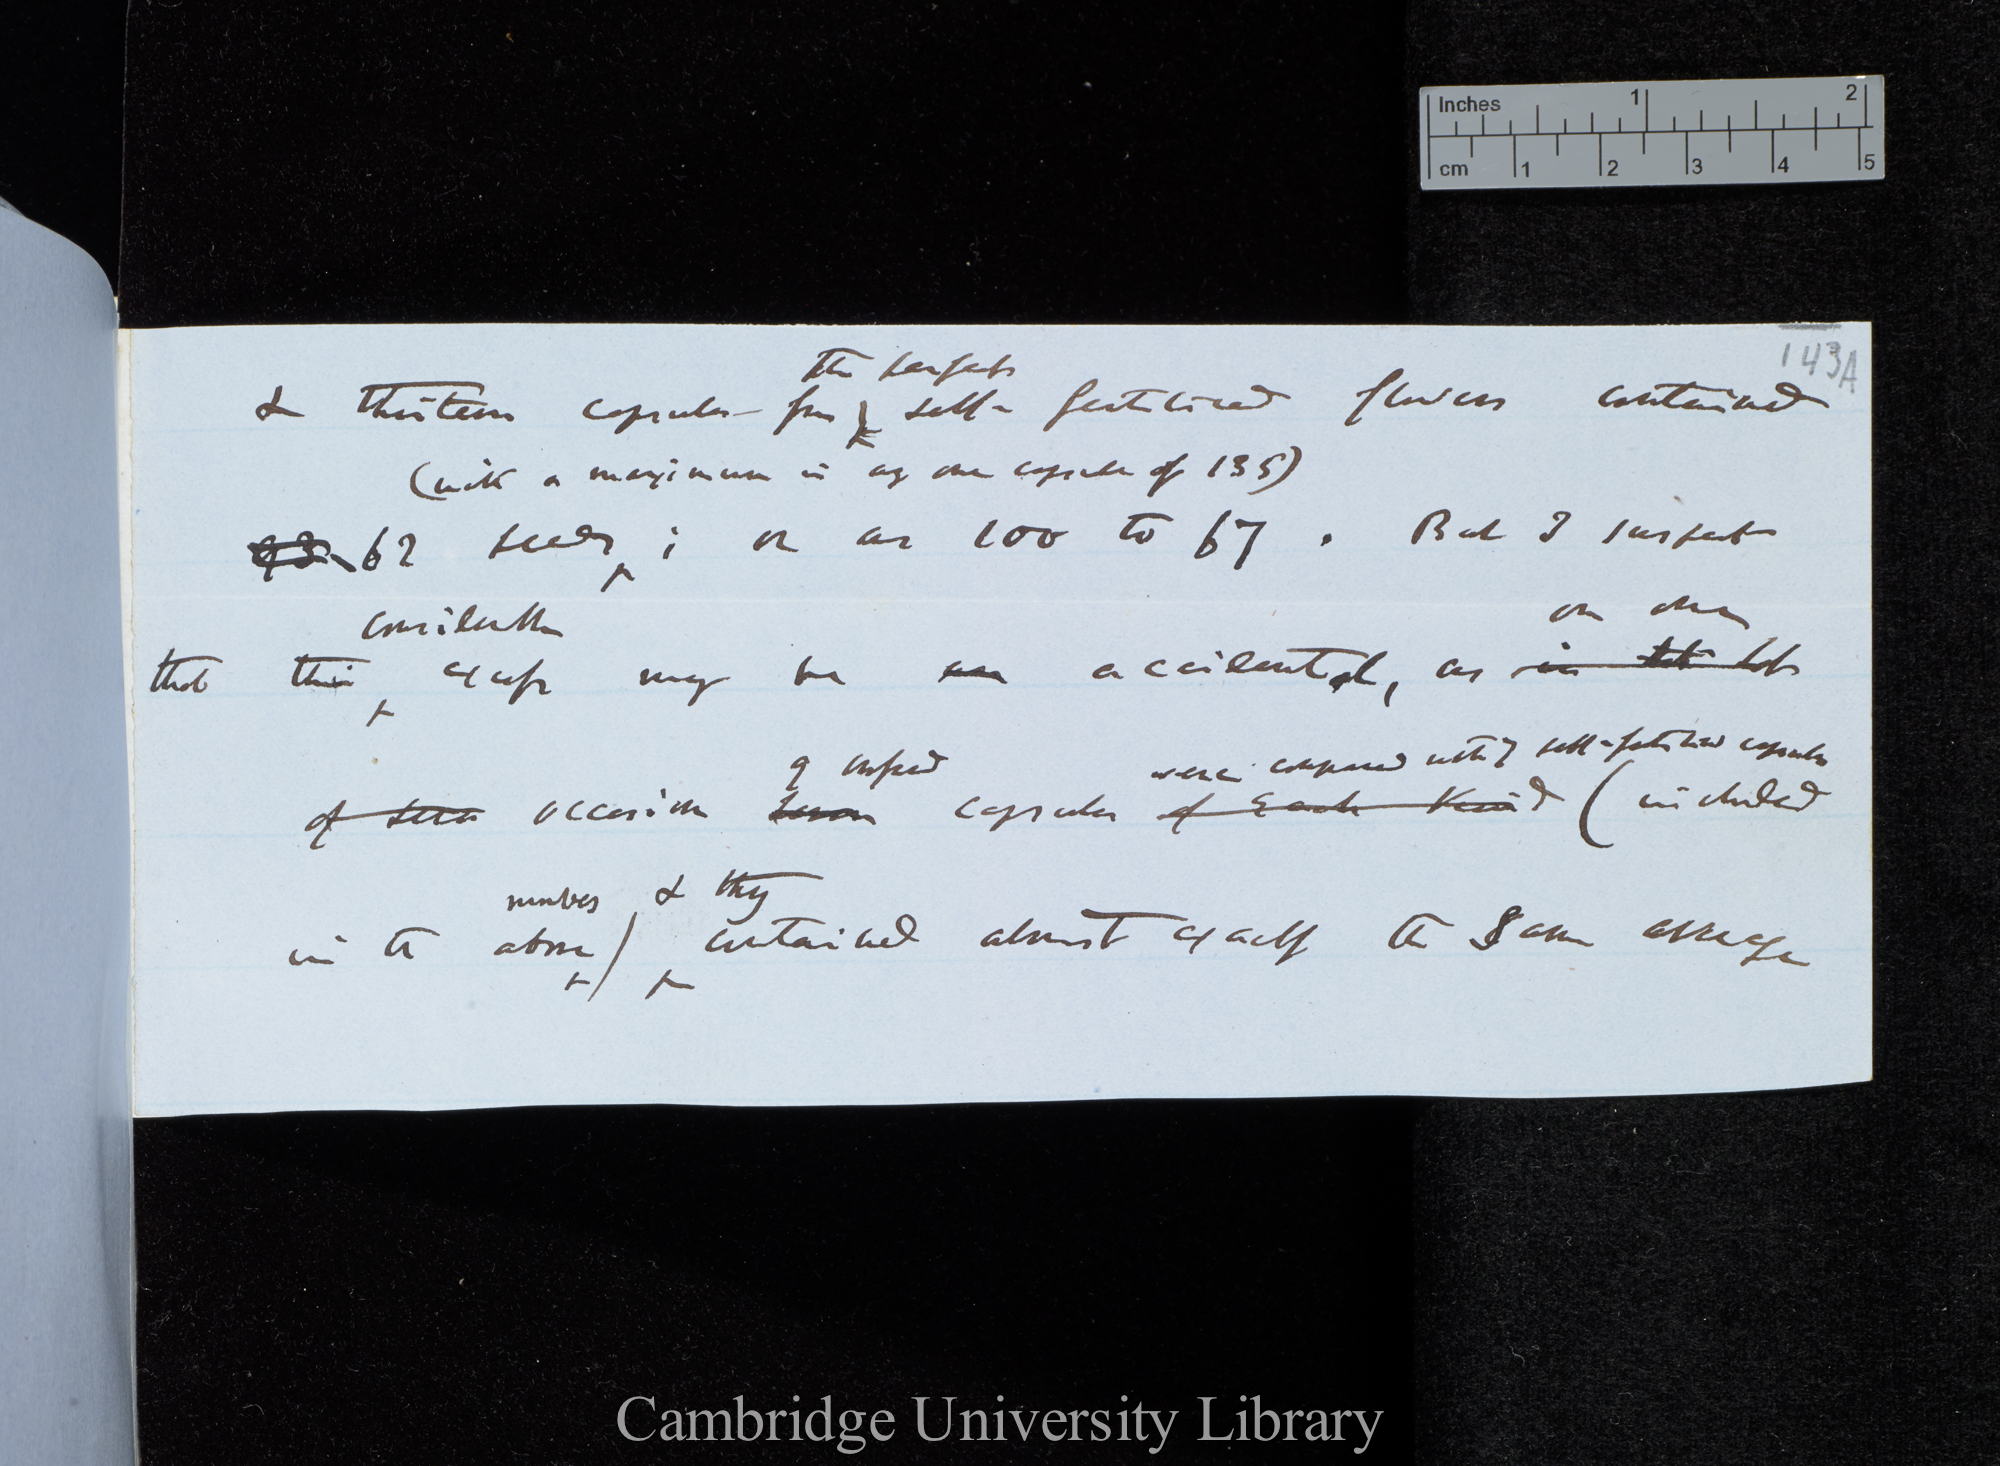 Inches 1 2
cm 1 2 3 4 5
143A
the perfect
& thirteen capsules from self-fertilised flowers contained
(with a maximum in any one capsule of 135)
93 62 seeds; or as 100 to 67. But I suspect
considerable on one
that this excess may be an accidental, as in
9 crossed were compared with 7 self-fertilised capsules
of occasion seven capsules of each kind (included
numbers & they
in the above) contained almost exactly the same average
Cambridge University Library